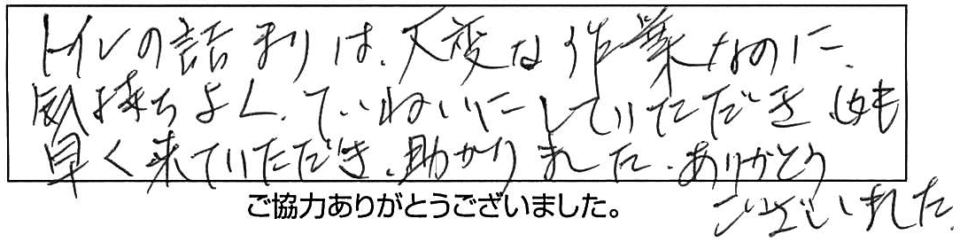 トイレの詰まりは、大変な作業なのに、
気持ちよく、ていねいにしていただき
早く来ていただき、助かりました。ありがとう
ございました。
ご協力ありがとうございました。